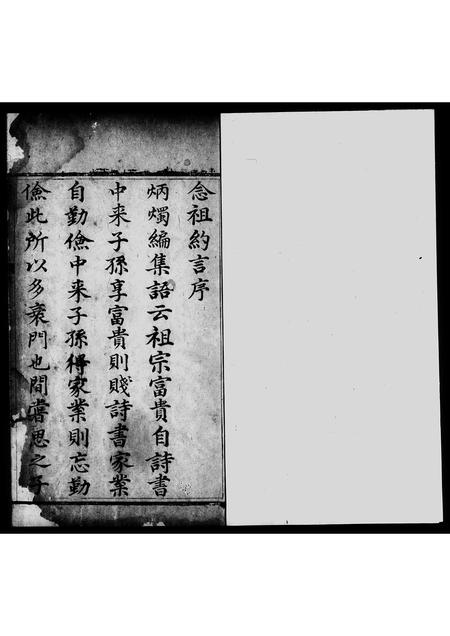 念祖約言序
炳燭編集語云祖宗富貴自詩書
中来子孫享富貴則賤詩書家業
自勤儉中来子孫得家業則忘勤
儉此所以多衰門也間嘗思之子